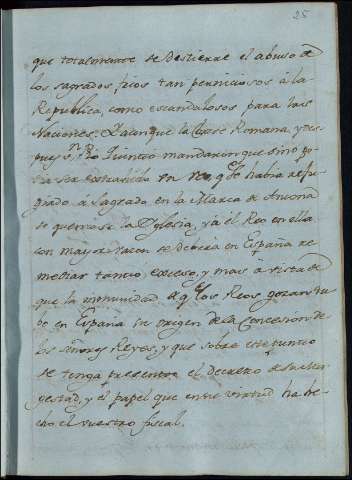 25
que totalmente se destierre el abuso de
los sagrados frios tan perniciosos à la
Republica, como escandalosos para las
Naciones. Que la Rosa Romana, y des
pues Sn. Pio Quinto mandaron que sino po
dia ser extrahida un reo, qe. se habia refu
giado a Sagrado en la Marca de Ancona
se quemase la Yglesia, y à el Reo en ella
con mayor razon se deberia en España re
mediar tanto exceso, y mas a vista de
que la inmunidad de q los Reos gozan tu
bo en España su origen de la Concesion de
los señores Reyes, y que sobre este punto
se tenga presente el decreto de su Ma
gestad, y el papel que en su virtud ha he
cho el vuestro fiscal.